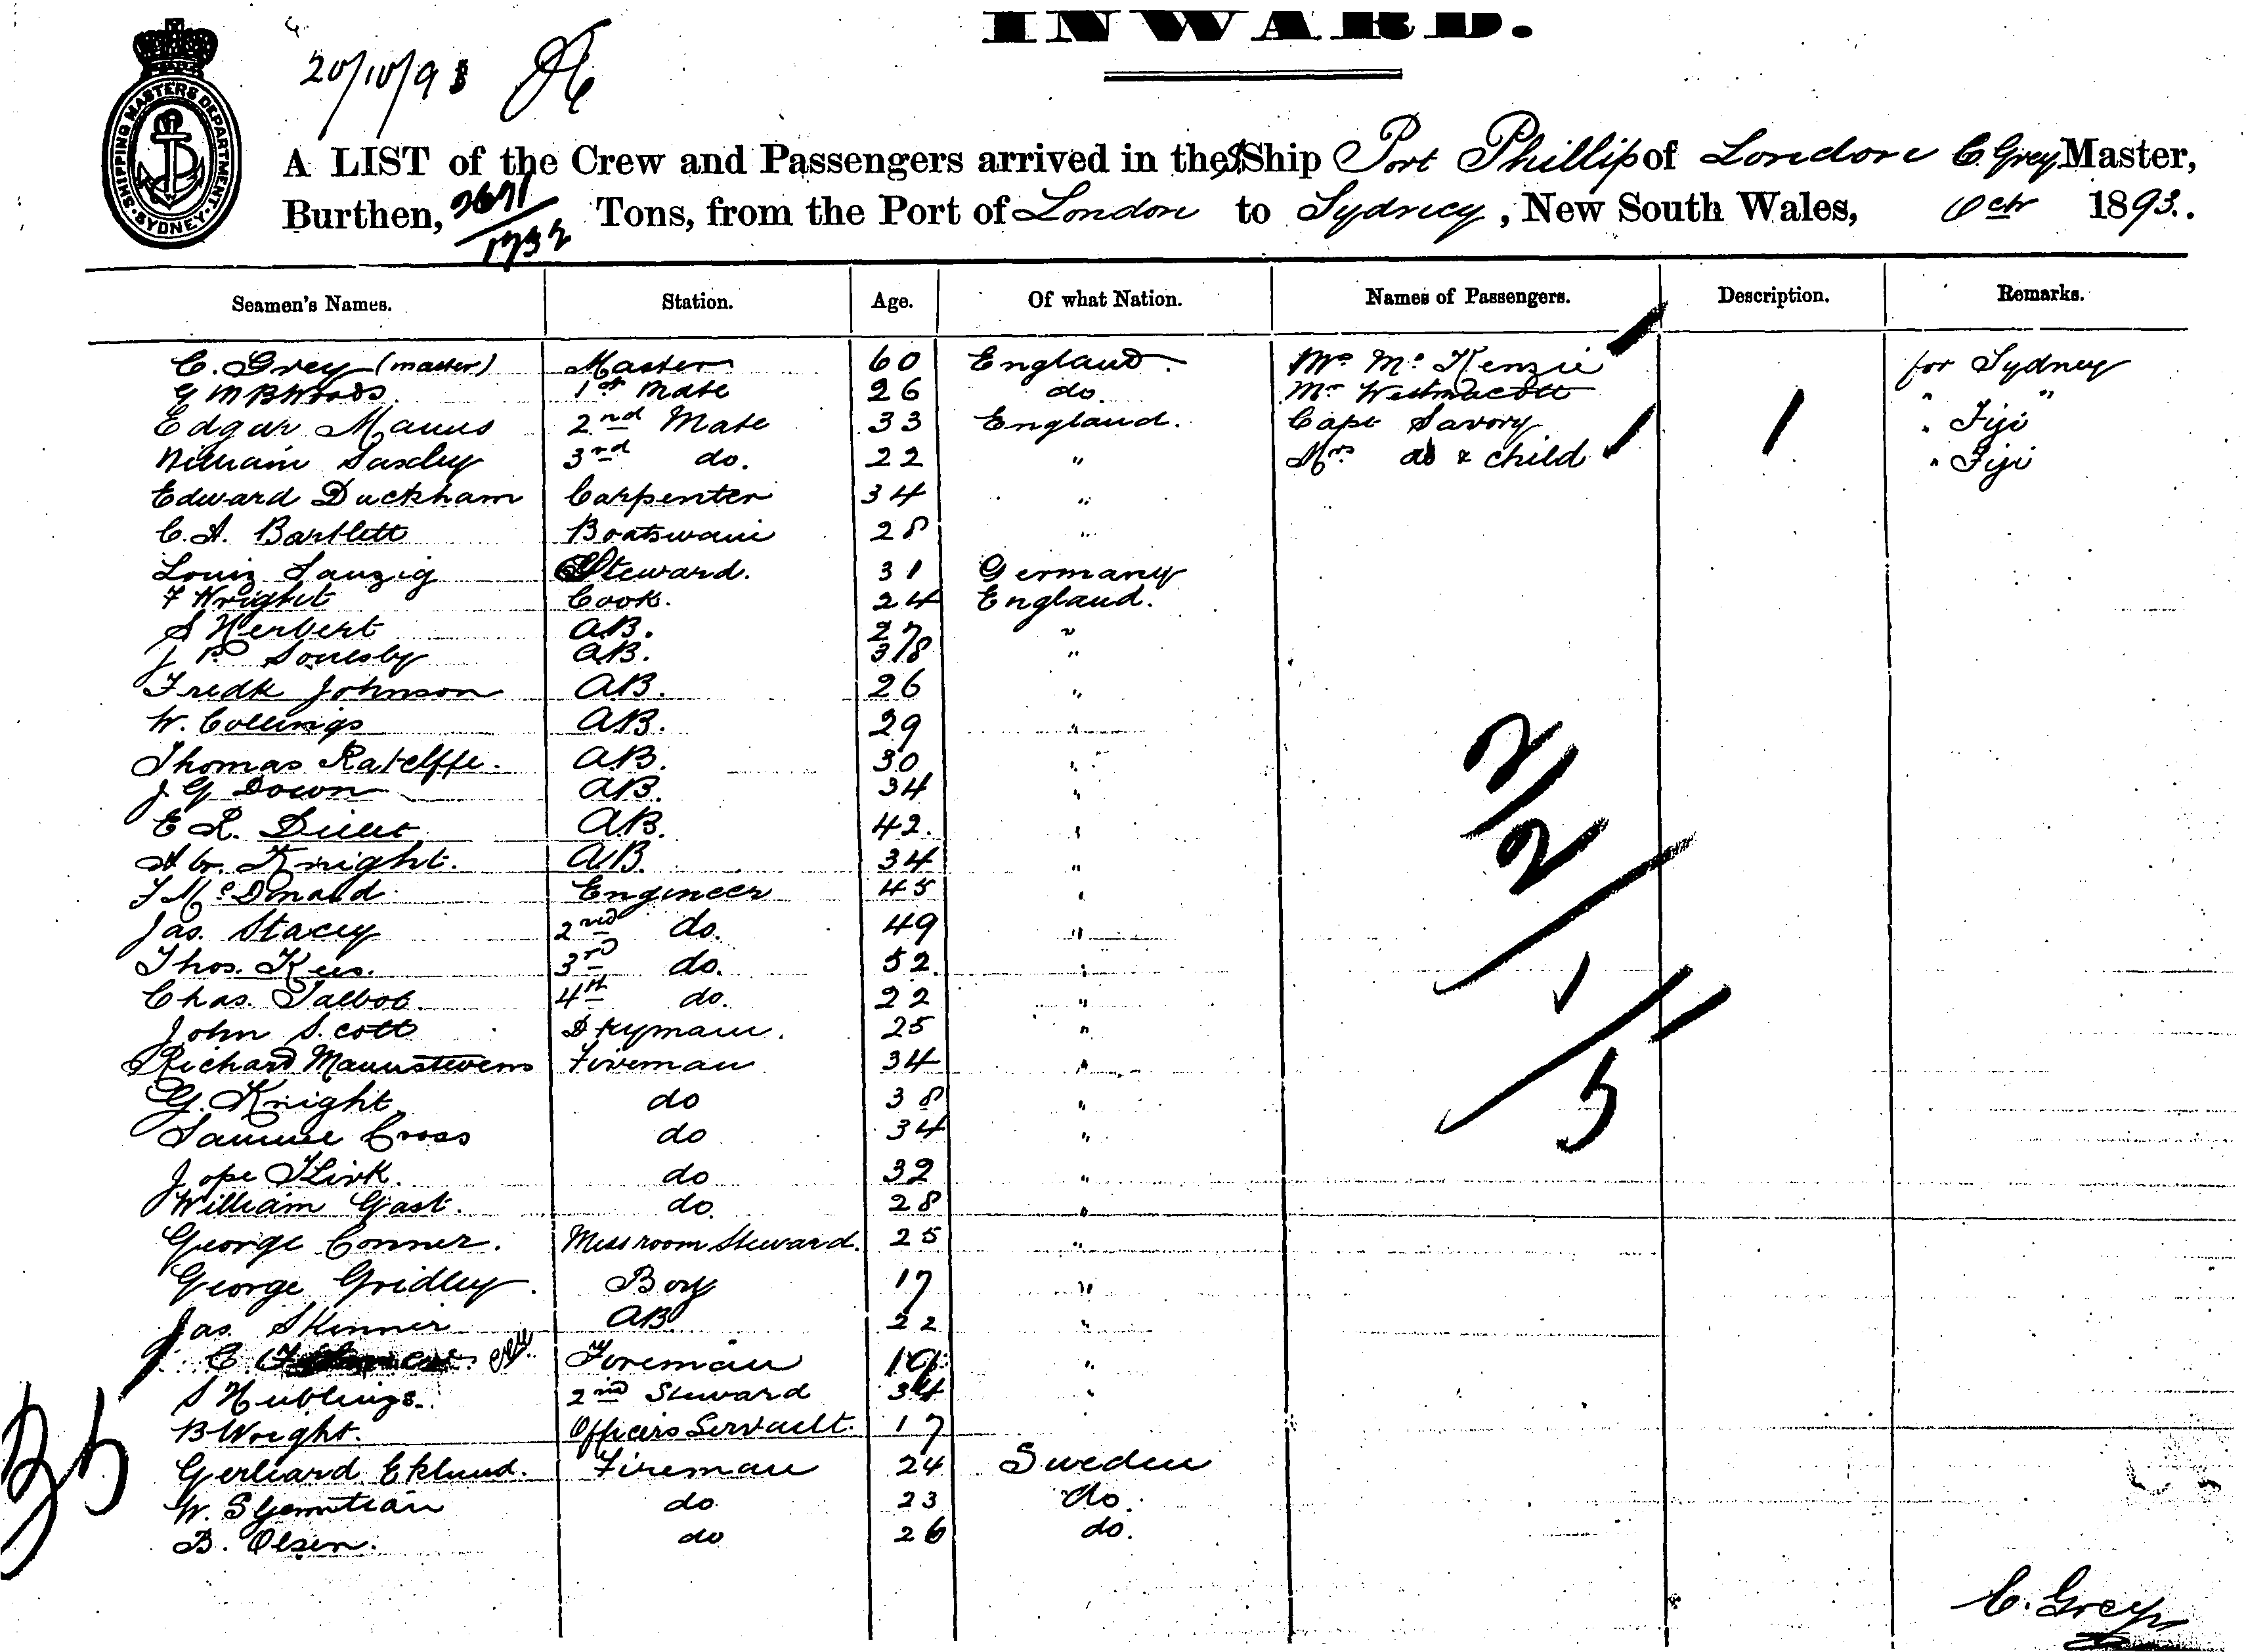 INWARD.
20/10/93
SHIPPING MASTERS DEPARTMENT. SYDNEY.
A LIST of the Crew and Passengers arrived in the S Ship Port Phillip of London C. Grey Master,
Burthen, 2671/1732 Tons, from the Port of London to Sydney, New South Wales, Octr 1893.
Seamen's Names. Station. Age. Of what Nation. Names of Passengers. Description. Remarks.
C. Grey (master) Master 60 England. Mrs Mc Kenzie for Sydney
G M B Woods 1st Mate 26 do. Mr Westmacott " "
Edgar Manns 2nd Mate 33 England. Capt Savory " Fiji
William Saxley 3rd do. 22 " Mrs do & child " Fiji
Edward Duckham Carpenter 34 "
C. A. Bartlett Boatswain 28 "
Louis Sanzig Steward. 31 Germany
F Wright Cook. 24 England.
S Herbert A.B. 27 "
J P. Souesby A.B. 38 "
Fredk Johnson A.B. 26 "
W. Collings A.B. 29 "
Thomas Ratclffe. A.B. 30 "
J G Down A.B. 34 "
E R. A.B. 42. "
Knight. A.B. 34 "
J McDonald Engineer 45 "
Jas. Stacey 2nd do. 49 "
Thos. Kees. 3rd do. 52. "
Chas. Talbot. 4th do. 22 "
John Scott 25 "
Richard Mannstevens Fireman 34 "
G. Knight do 38 "
Samuel Cross do 34 "
Kirk. do 32 "
William Gast. do. 28 "
George Conner. Messroom Steward. 25 "
George Gridley. Boy 17 "
Jas. Skinner AB 22 "
C. Foreman 19 "
S Hublings. 2nd Steward 34 "
B Wright. Officers Servant. 17
Gerhard Eklund. Fireman 24 Sweden
W. do 23 do.
B. Olsen. do 26 do.
2/2
1
5
35
C. Grey